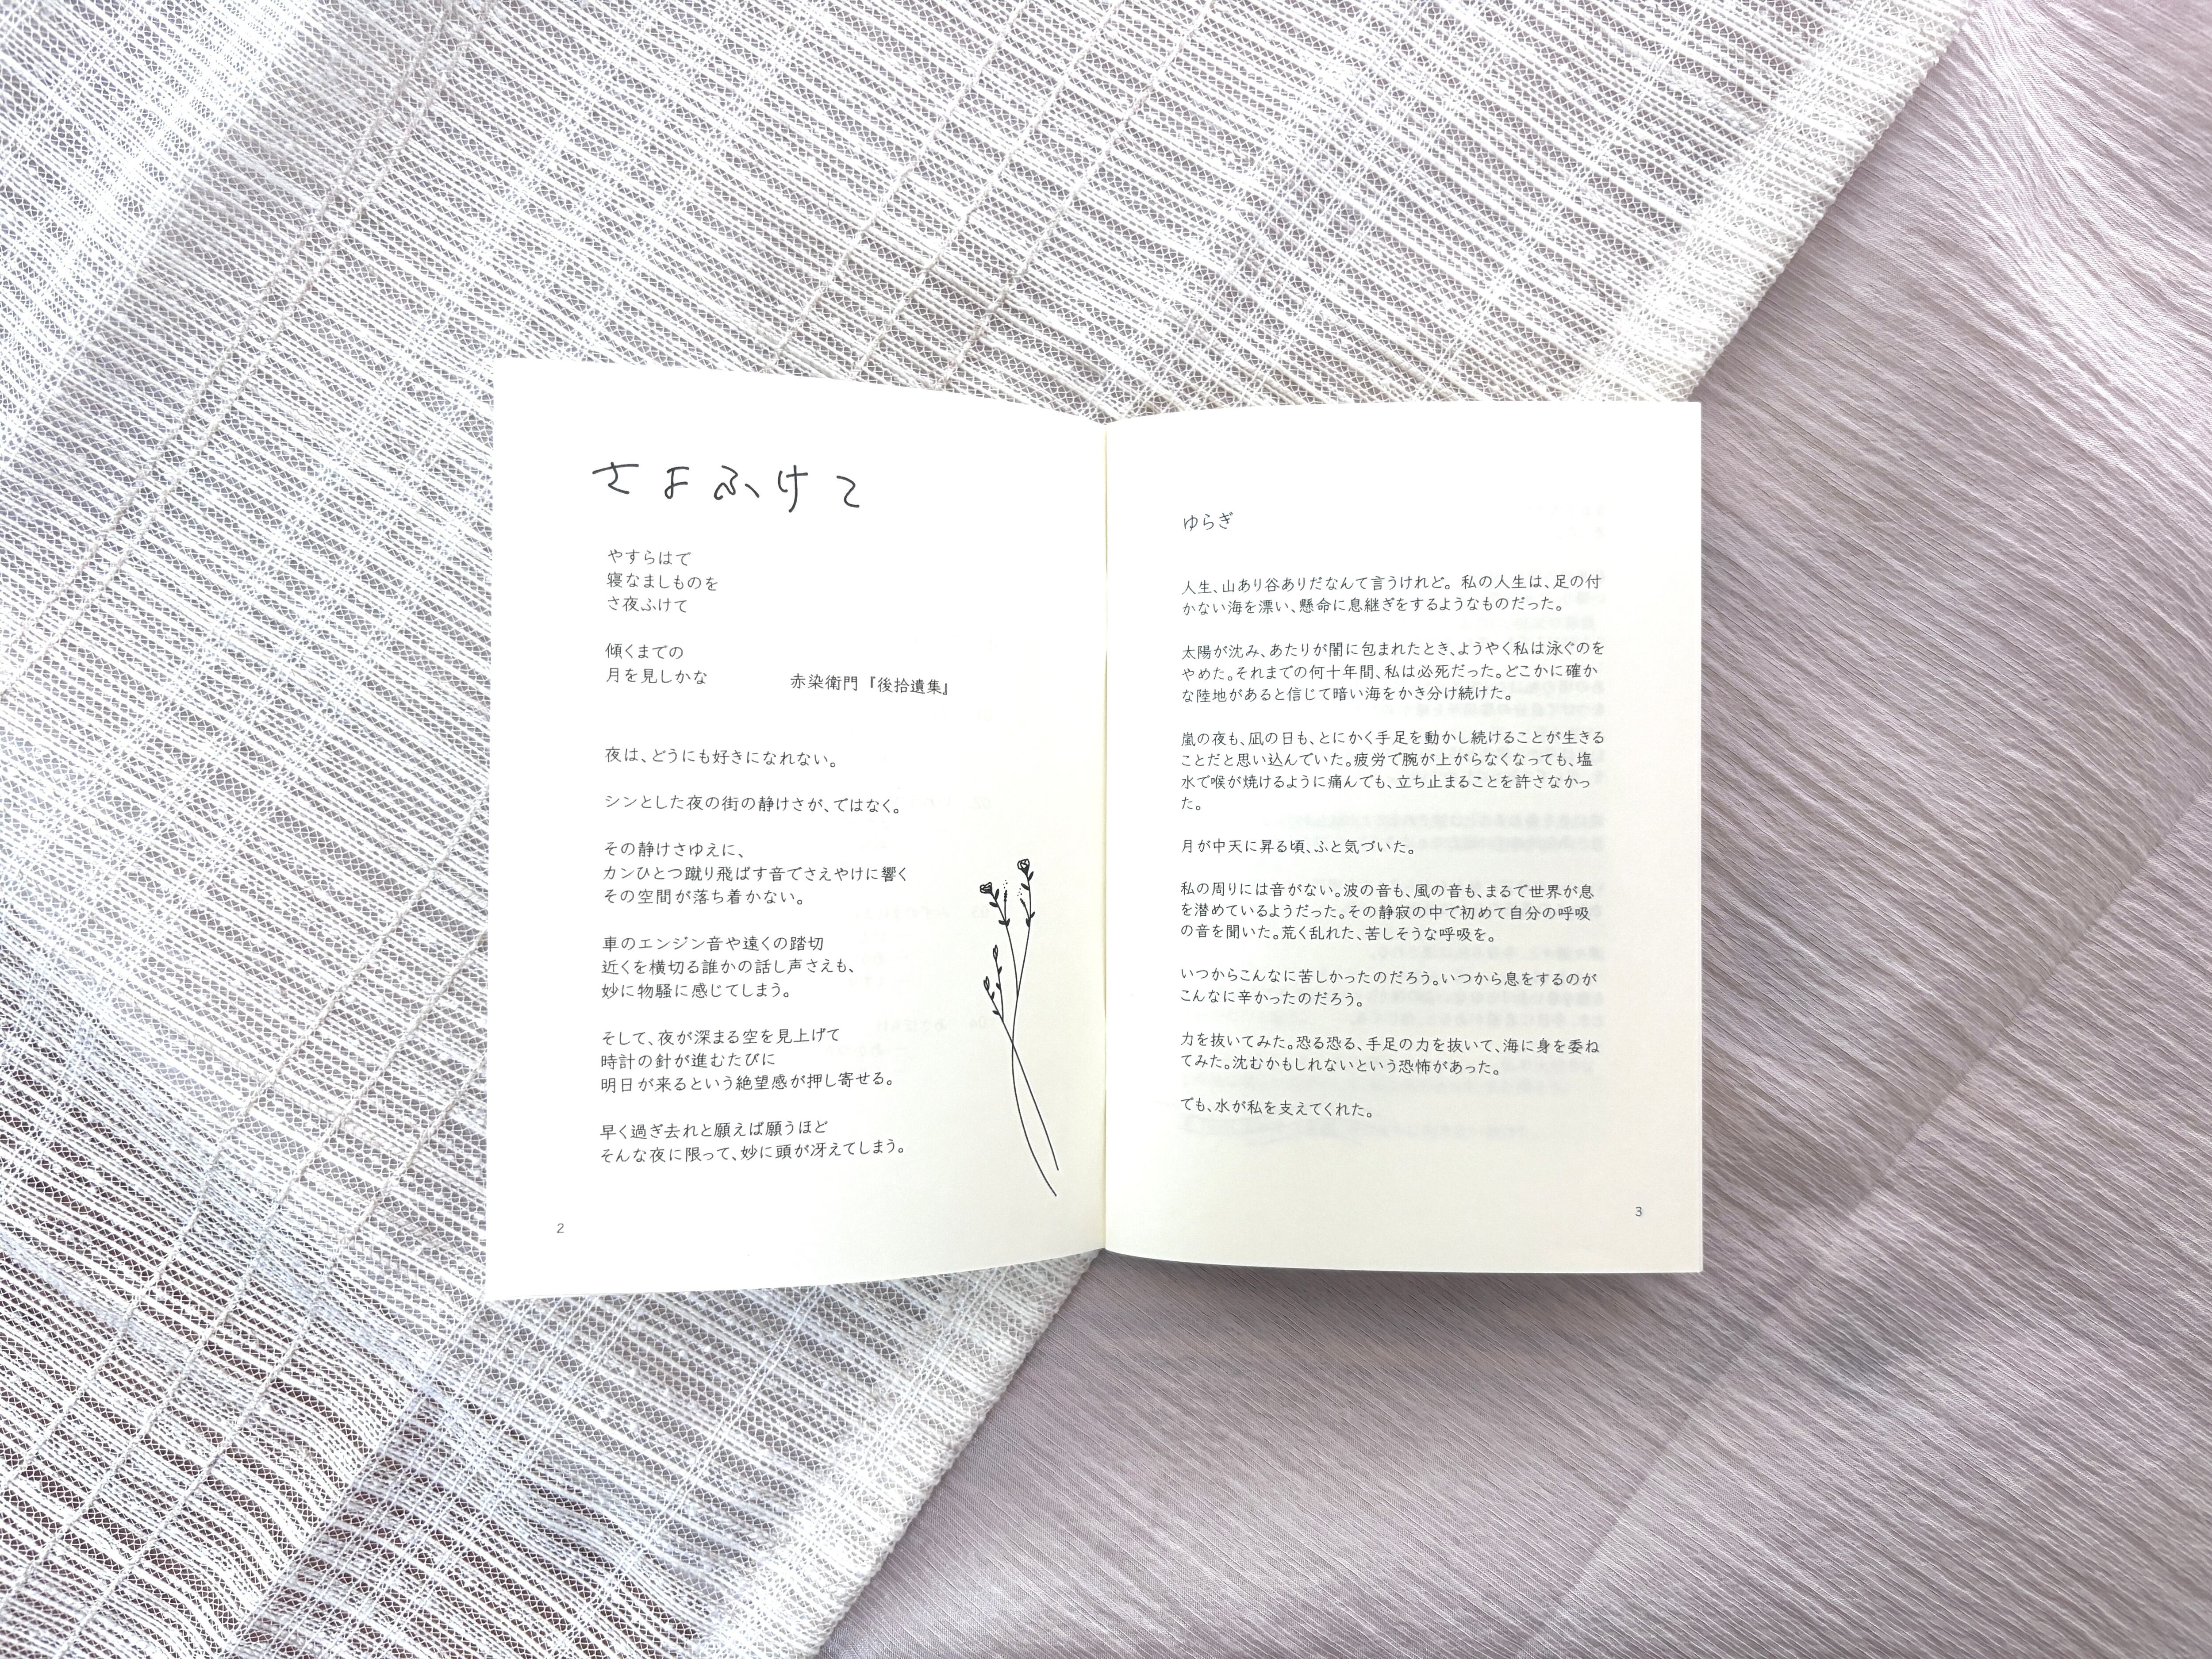 さよふけて
やすらはて
寝なましものを
さ夜ふけて
傾くまでの
月を見しかな
赤染衛門『後拾遺集』
夜は、どうにも好きになれない。
シンとした夜の街の静けさが、ではなく。
その静けさゆえに、
カンひとつ蹴り飛ばす音でさえやけに響く
その空間が落ち着かない。
車のエンジン音や遠くの踏切
近くを横切る誰かの話し声さえも、
妙に物騒に感じてしまう。
そして、夜が深まる空を見上げて
時計の針が進むたびに
明日が来るという絶望感が押し寄せる。
早く過ぎ去れと願えば願うほど
そんな夜に限って、妙に頭が冴えてしまう。
2
ゆらぎ
人生、山あり谷ありだなんて言うけれど。 私の人生は、足の付
かない海を漂い、懸命に息継ぎをするようなものだった。
太陽が沈み、あたりが闇に包まれたとき、ようやく私は泳ぐのを
やめた。それまでの何十年間、私は必死だった。どこかに確か
な陸地があると信じて暗い海をかき分け続けた。
嵐の夜も、凪の日も、とにかく手足を動かし続けることが生きる
ことだと思い込んでいた。疲労で腕が上がらなくなっても、塩
水で喉が焼けるように痛んでも、立ち止まることを許さなかっ
た。
月が中天に昇る頃、ふと気づいた。
私の周りには音がない。波の音も、風の音も、まるで世界が息
を潜めているようだった。その静寂の中で初めて自分の呼吸
の音を聞いた。荒く乱れた、苦しそうな呼吸を。
いつからこんなに苦しかったのだろう。いつから息をするのが
こんなに辛かったのだろう。
力を抜いてみた。恐る恐る、手足の力を抜いて、海に身を委ね
てみた。沈むかもしれないという恐怖があった。
でも、水が私を支えてくれた。
3